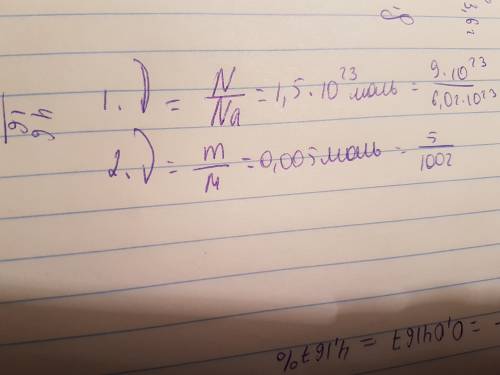 1. ν = N/Na = 1,5·10²³ моль = 9·10²³/6,02·10²³
2. ν = m/M = 0,005 моль = 5/100г
= 0,04167 = 4,167%
64
16
3,6г